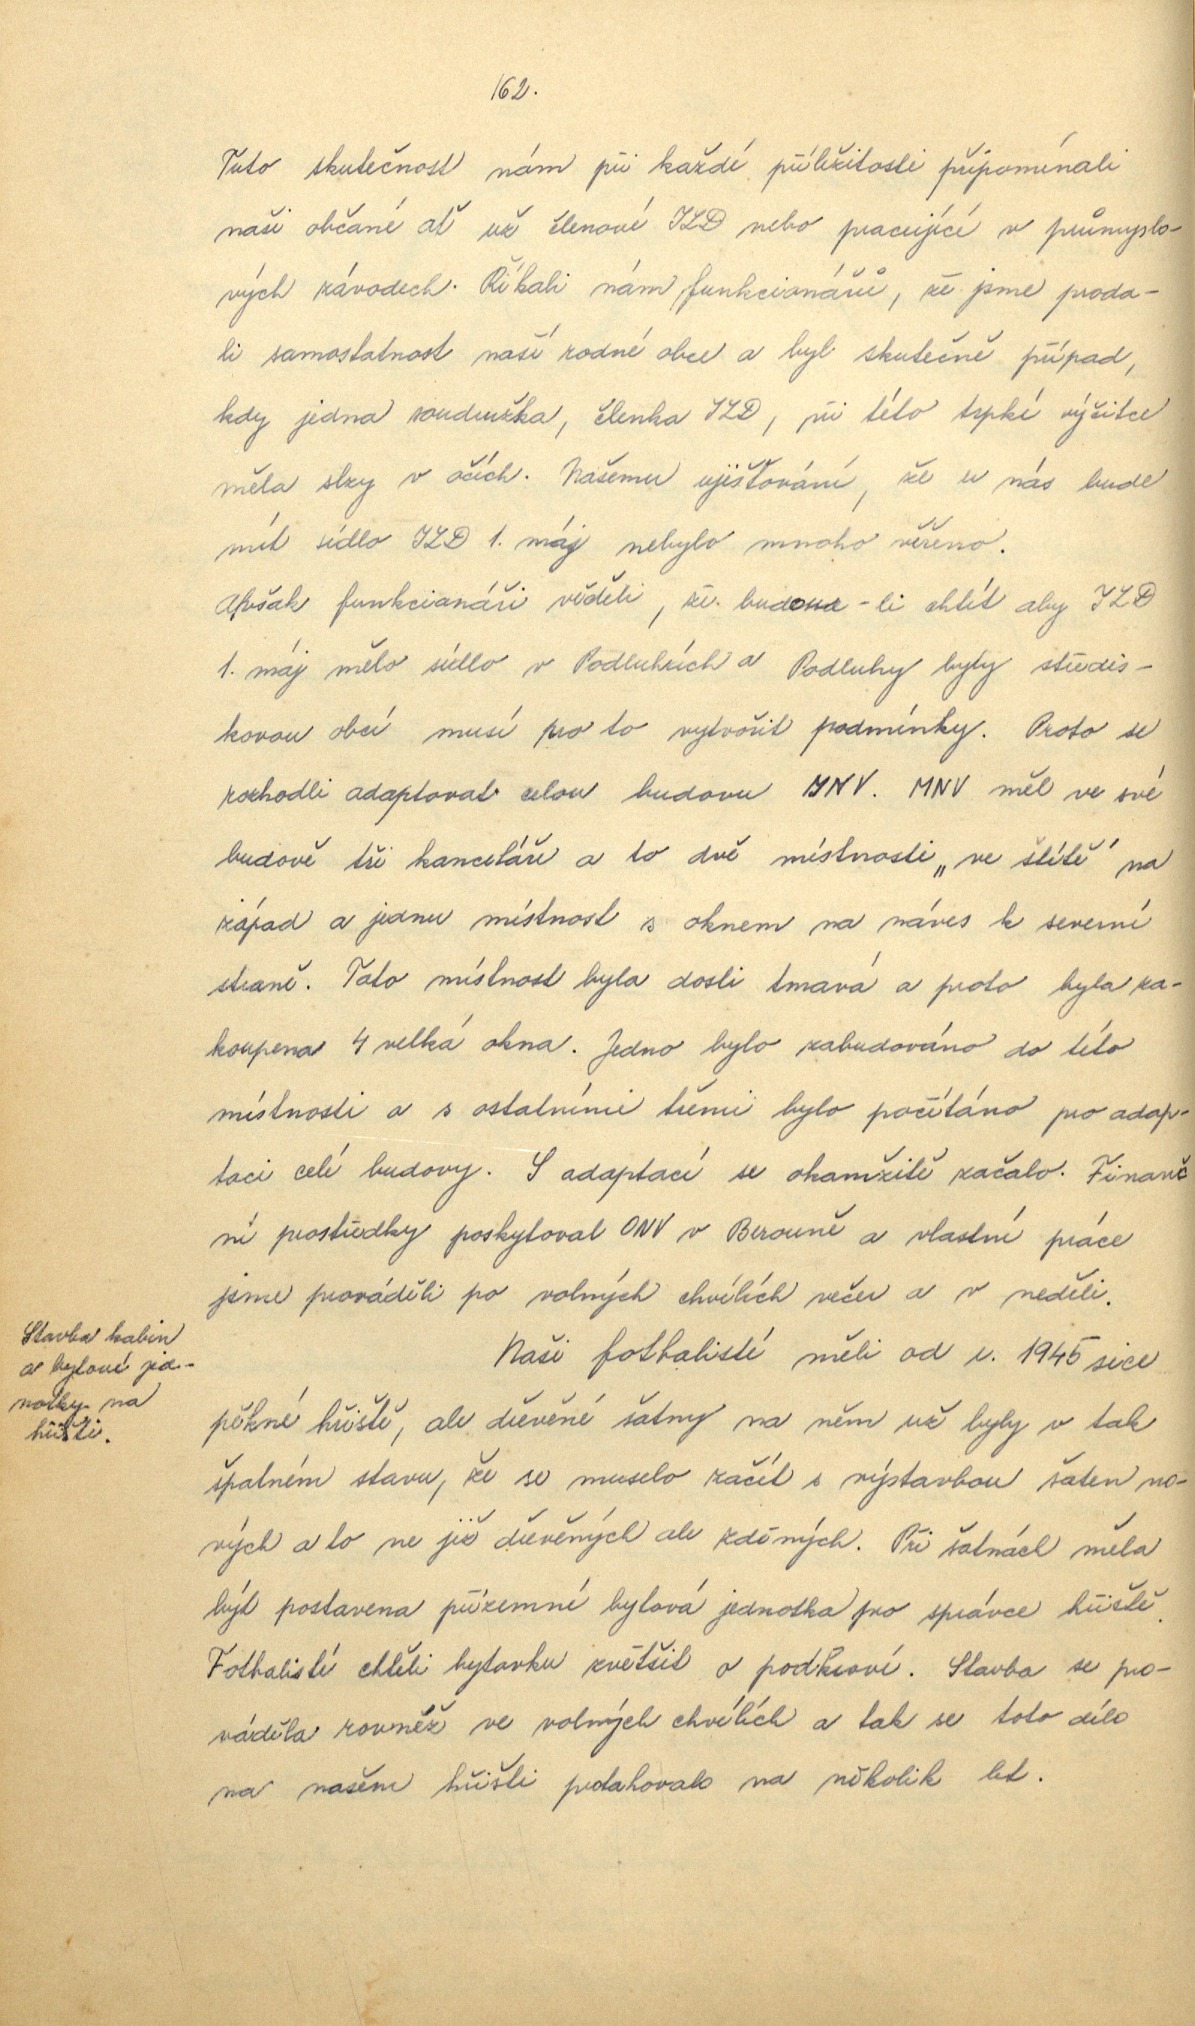 162.
Tuto skutečnost nám při každé příležitosti připomínali
naši občané ať už členové JZD nebo pracující v průmyslo-
vých závodech. Říkali nám funkcionářů, že jsme proda-
li samostatnost naší rodné obce a byl skutečně případ,
kdy jedna soudružka, členka JZD, při této trpké výčitce
měla slzy v očích. Našemu ujišťování, že u nás bude
mít sídlo JZD 1. máj nebylo mnoho věřeno.
Avšak funkcionáři věděli, že budou-li chtít aby JZD
1. máj mělo sídlo v Podluhách a Podluhy byly středis-
kovou obcí musí pro to vytvořit podmínky. Proto se
rozhodli adaptovat celou budovu MNV. MNV měl ve své
budově tři kanceláře a to dvě místnosti „ve štítě" na
západ a jednu místnost s oknem na náves k severní
straně. Tato místnost byla dosti tmavá a proto byla za-
koupena 4 velká okna. Jedno bylo zabudováno do této
místnosti a s ostatními třemi bylo počítáno pro adap-
taci celé budovy. S adaptací se okamžitě začalo. Finanč
ní prostředky poskytoval ONV v Berouně a vlastní práce
jsme prováděli po volných chvílích večer a v neděli.
Stavba kabin
a bytové jed-
notky na
hřišti.
Naši fotbalisté měli od r. 1945 sice
pěkné hřiště, ale dřevěné šatny na něm už byly v tak
špatném stavu, že se muselo začít s výstavbou šaten no-
vých a to ne již dřevěných ale zděných. Při šatnách měla
být postavena přízemní bytová jednotka pro správce hřiště.
Fotbalisté chtěli bytovku zvětšit o podkroví. Stavba se pro-
váděla rovněž ve volných chvílích a tak se toto dílo
na našem hřišti protahovalo na několik let.